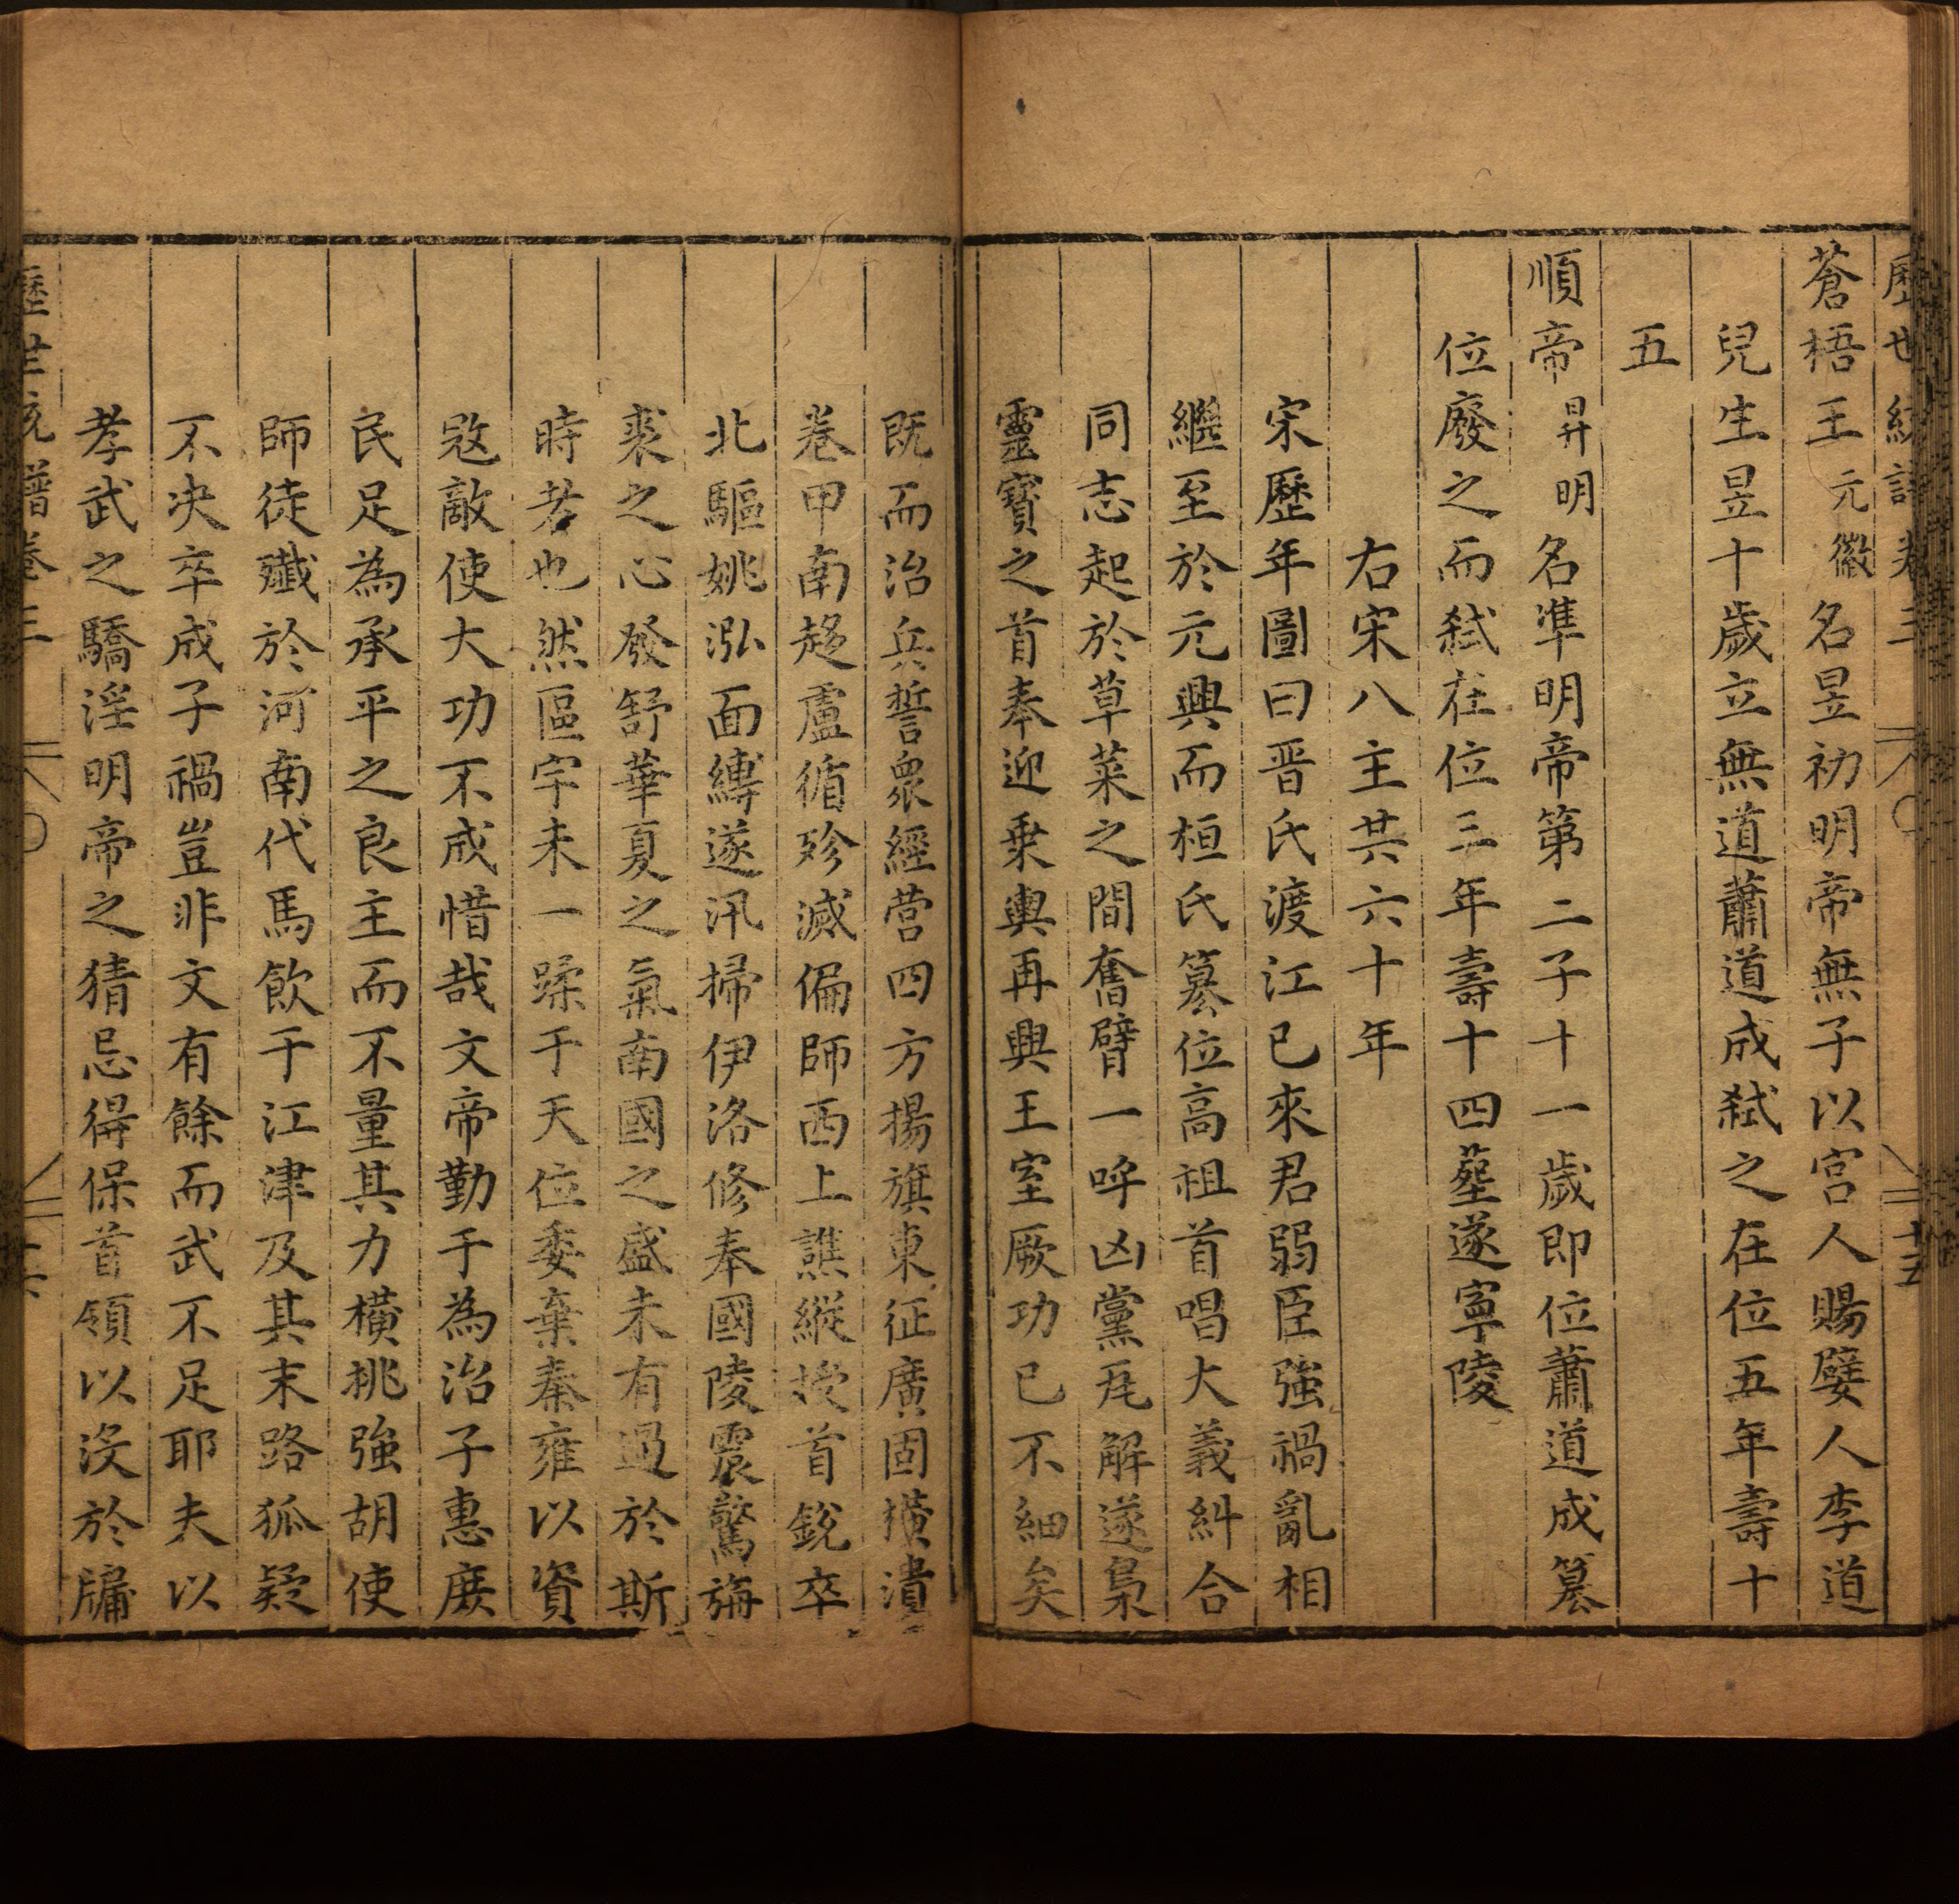 歷世統譜卷三 十五
蒼梧王元徽名昱初明帝無子以宮人賜嬖人李道
兒生昱十歲立無道蕭道成弒之在位五年壽十
五
順帝昇明名凖明帝第二子十一歲即位蕭道成篡
位廢之而弒在位三年壽十四塟遂寧陵
右宋八主共六十年
宋歷年圖曰晋氏渡江已來君弱臣強禍亂相
繼至於元興而桓氏篡位高祖首唱大義糾合
同志起於草萊之間奮臂一呼凶黨瓦解遂梟
靈寶之首奉迎乗輿再興王室厥功已不細矣
既而治兵誓衆經营四方揚旗東征廣固撗潰
卷甲南趍盧循殄滅偏師西上譙縱授首銳卒
北驅姚泓面縛遂汛掃伊洛修奉國陵震驚旃
裘之心發舒華夏之氣南國之盛未有過於斯
時者也然區宇未一蹂于天位委棄秦雍以資
㓂敵使大功不成惜哉文帝勤于為治子惠庻
民足為承平之良主而不量其力横挑強胡使
師徒殱於河南代馬飲于江津及其末路狐疑
不决卒成子禍豈非文有餘而武不足耶夫以
孝武之驕淫明帝之猜忌得保首領以没於牖
歷世統譜卷三 十六